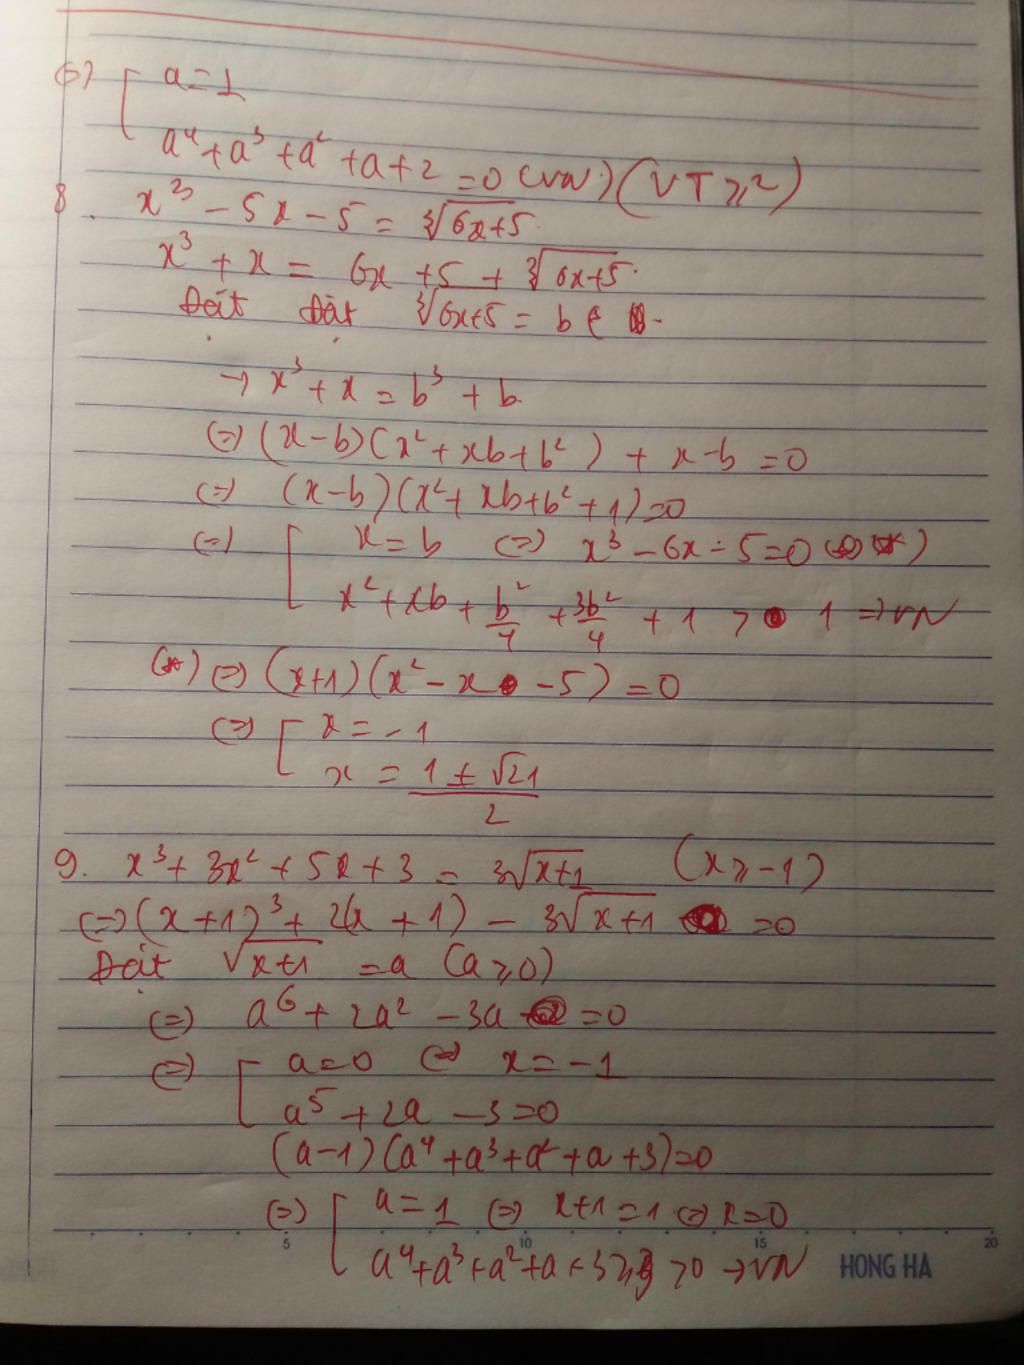 (=) [ a = 1
a⁴ + a³ + a² + a + 2 = 0 (VN) (VT ≥ 2)
8. x³ - 5x - 5 = ∛(6x+5)
x³ + x = 6x + 5 + ∛(6x+5)
Đặt Đặt ∛(6x+5) = b
→ x³ + x = b³ + b
(=) (x-b)(x² + xb + b²) + x-b = 0
(=) (x-b)(x² + xb + b² + 1) = 0
(=) [ x = b (=) x³ - 6x - 5 = 0 (*)
x² + xb + b²/4 + 3b²/4 + 1 > 1 => VN
(*) (=) (x+1)(x² - x - 5) = 0
(=) [ x = -1
x = (1 ± √21)/2
9. x³ + 3x² + 5x + 3 = 3√(x+1) (x ≥ -1)
(=) (x+1)³ + 2(x+1) - 3√(x+1) = 0
Đặt √(x+1) = a (a ≥ 0)
(=) a⁶ + 2a² - 3a = 0
(=) [ a = 0 (=) x = -1
a⁵ + 2a - 3 = 0
(a-1)(a⁴ + a³ + a² + a + 3) = 0
(=) [ a = 1 (=) x+1 = 1 (=) x = 0
a⁴ + a³ + a² + a + 3 ≥ 3 > 0 → VN
5 10 15 20
HONG HA